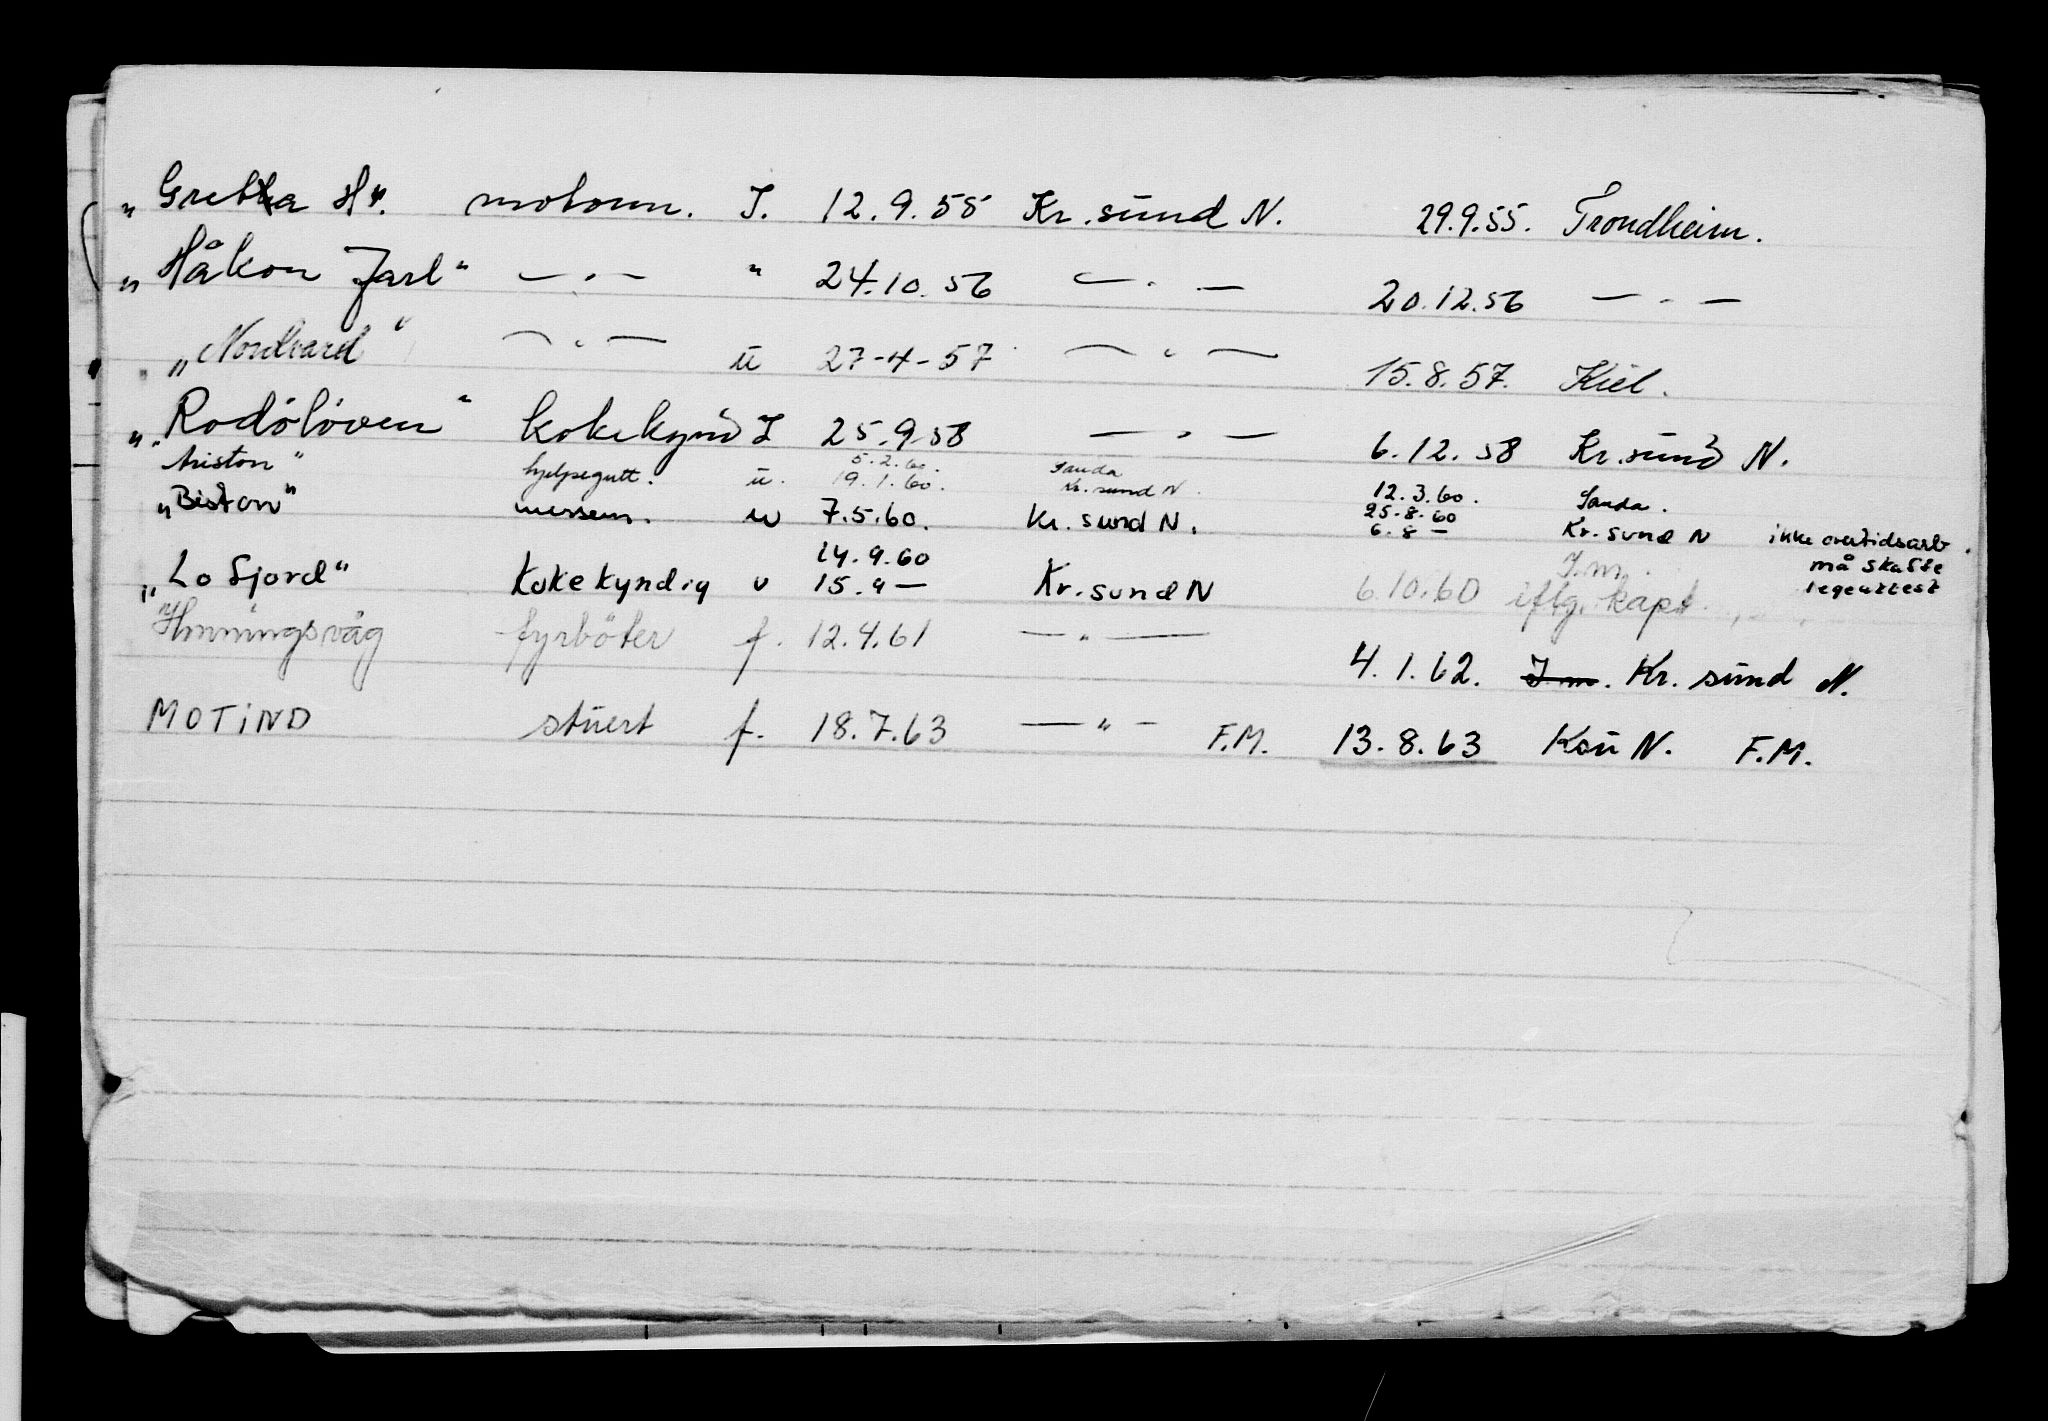 „Gretha H". motorm. I. 12.9.55 Kr.sund N. 29.9.55. Trondheim.
„Håkon Jarl" — . — " 24.10.56 — . — 20.12.56 — . —
„Nordvard" — . — u 27-4-57 — . — 15.8.57. Kiel.
„Rodøløven" kokekynd I 25.9.58 — . — 6.12.58 Kr.sund N.
5.2.60. Sauda
Ariston" hjelpegutt. u. 19.1.60. Kr.sund N. 12.3.60. Sauda.
25.8.60
„Biston" messem. u 7.5.60. Kr.sund N. 6.8 — Kr.sund N ikke overtidsarb.
14.9.60 I.m. må skaffe
„Lofjord" Kokekyndig u 15.9 — Kr.sund N 6.10.60 iflg. kapt. legeattest
Honningsvåg fyrbøter f. 12.4.61 — " — 4.1.62. I.m. Kr.sund N.
MOTIND stuert f. 18.7.63 — " — F.M. 13.8.63 Ksu N. F.M.